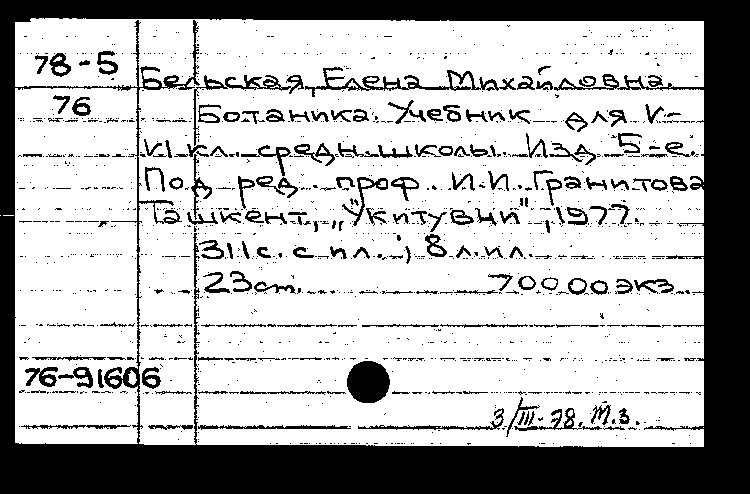 78-5
Бельская, Елена Михайловна.
76
Ботаника. Учебник для V-
VI кл. средн. школы. Изд 5-е.
Под ред. проф. И.И. Гранитова
Ташкент, „Ўкитувчи", 1977.
311 с. с ил.; 8 л. ил.
23 cm. 70000 экз.
76-91606
3/III-78. Т.З.